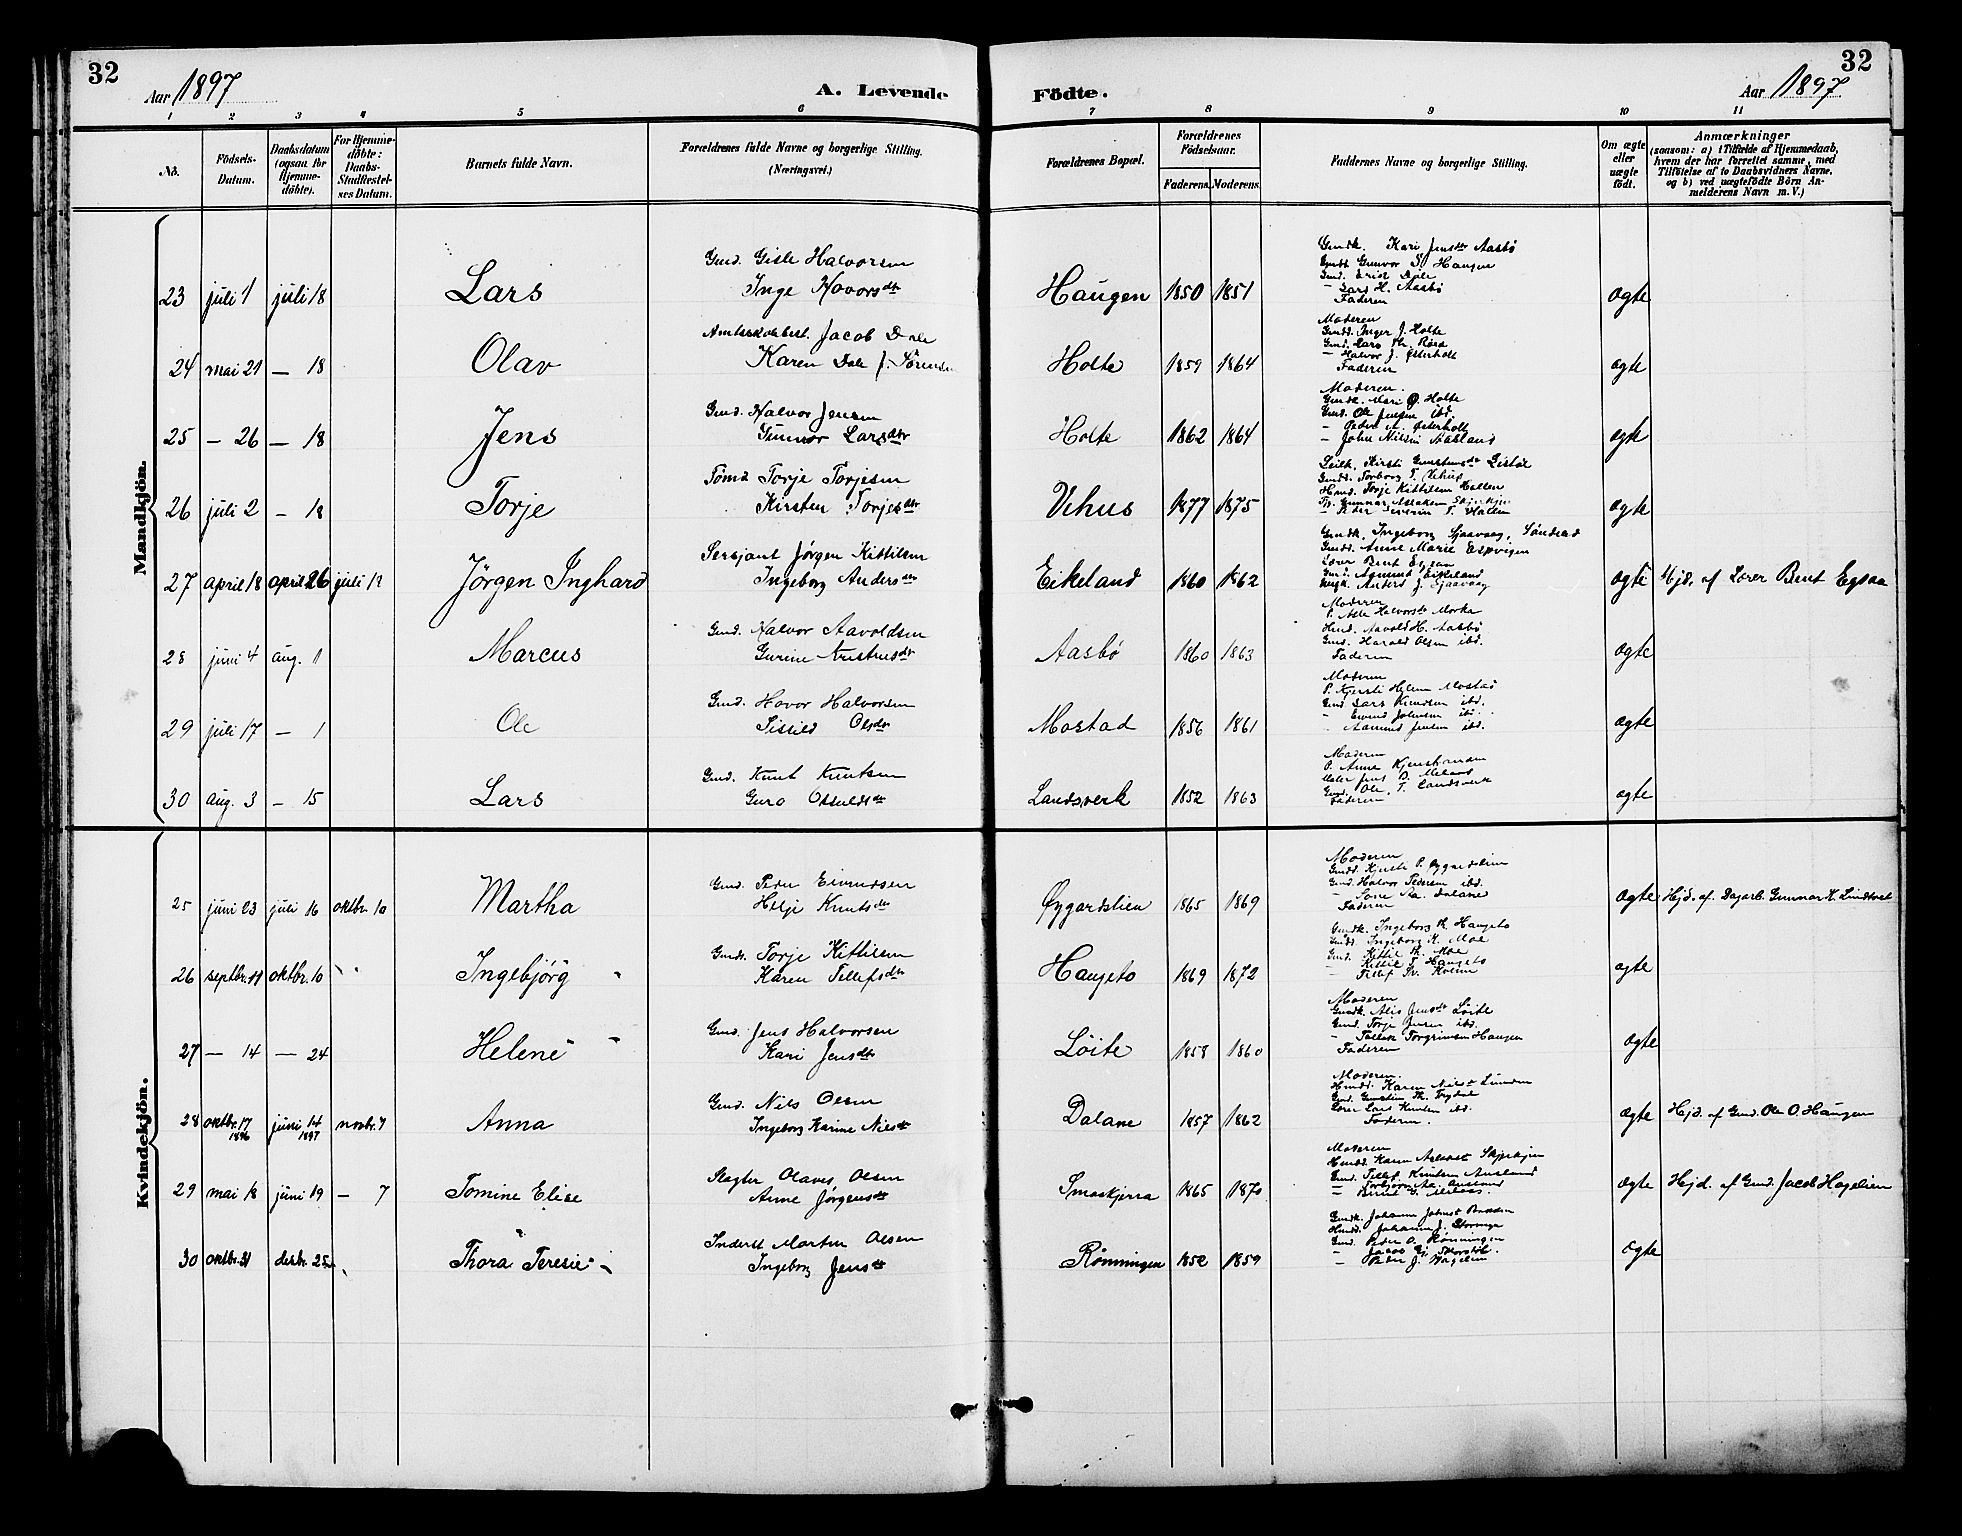 32
Aar 1897
A. Levende
Födte.
Aar 1897
32
1 2 3 4 5 6 7 8 9 10 11
No.
Födsels-
Datum.
Daabsdatum
(ogsaa for
Hjemme-
döbte).
For Hjemme-
döbte:
Daabs-
Stadfæstel-
ses Datum.
Barnets fulde Navn.
Forældrenes fulde Navne og borgerlige Stilling.
(Næringsvei.)
Forældrenes Bopæl.
Forældrenes
Födselsaar.
Faderens. Moderens.
Faddernes Navne og borgerlige Stilling.
Om ægte
eller
uægte
födt.
Anmærkninger
(saasom: a) i Tilfælde af Hjemmedaab,
hvem der har forrettet samme, med
Tilföielse af to Daabsvidners Navne,
og b) ved uægtefödte Börn An-
melderens Navn m. V.)
Mandkjön.
23 juli 1 juli 18 Lars
Gmd. Gisle Halvorsen
Inge Hovorsdtr
Haugen 1850 1851
Gmdk. Kari Jensdtr Aasbø
Gmdd. Gunvor S. Haugen
Gmd. Erik Dale
- Lars H. Aasbø
Faderen
ægte
24 mai 21 - 18 Olav
Jacob Dale
Karen Dale f. Sörensen
Holte 1859 1864
Moderen
Gmdd. Inger J. Holte
Gmd. Lars
- Halvor J. Østerholt
Faderen
ægte
25 - 26 - 18 Jens
Gmd. Halvor Jensen
Gunvor Larsdtr
Holte 1862 1864
Moderen.
Gmdk. Mari O. Holte
Gmd. Ole Jensen ibd.
- Østerholt
- John Nilsen
ægte
26 juli 2 - 18 Torje
Tömd Torje Torjesen
Kirsten Torjesdtr
Vehus 1877 1875
Kirsti
Gmdd. Torborg T. Vehus
Torje Kittilsen Hallen
Gunnar Aslaksen
ægte
27 april 18 april 26 juli 18 Jørgen Inghard
Sersjant Jørgen Kittilsen
Ingeborg Andersdtr
Eikeland 1860 1862
Gmdk. Ingeborg Sjaavaag, Søndeled
Gmdd. Anne Marie Espvigen
Lærer Bent Egsaa
Gmd. Aamund Eikeland
Anders J. Sjaavaag
ægte Hjd. af Lærer Bent Egsaa
28 juni 4 aug. 1 Marcus
Gmd. Halvor Aavoldsen
Gurine
Aasbø 1860 1863
Moderen
P. Halvorsdtr
Aavold H. Aasbø
Gmd. Harald Olsen ibd.
Faderen
ægte
29 juli 17 - 1 Ole
Gmd. Hovor Halvorsen
Olsdtr
Mostad 1856 1861
Moderen
P. Kjersti Mostad
Gmd. Lars Knudsen ibd.
- Eivind Johnsen ibd.
- Aamund Jensen ibd.
ægte
30 aug. 3 - 15 Lars
Gmd. Knut Knutsen
Guro
Landsverk 1852 1863
Moderen
Anne
Jens
Gmd. Ole T. Landsverk
Faderen
ægte
Kvindekjön.
25 juni 23 juli 16 oktbr. 10 Martha
Gmd. Peder Eivindsen
Helje Knutsdtr
Øygardslien 1865 1869
Moderen
Gmdd. Kjersti P. Øygardslien
Gmd. Halvor Pedersen ibd.
Dalane
Faderen
ægte Hjd. af. Dagarb. Gunnar K. Lindtveit
26 septbr. 11 oktbr. 10 Ingebjørg
Gmd. Torje Kittilsen
Karen Tellefsdtr
Haugeto 1869 1872
Gmdk. Ingeborg K. Haugeto
Gmdd. Ingeborg K. Moe
Gmd. Kittil K. Moe
- Kittil T. Haugeto
- Tellef
ægte
27 - 14 - 24 Helene
Gmd. Jens Halvorsen
Kari Jensdtr
Löite 1858 1860
Moderen
Gmdk. Jensdtr Löite
Gmd. Torje Jensen ibd.
- Torgrimsen Haugen
Faderen
ægte
28 oktbr. 17 1896 juni 14 1897 novbr. 7 Anna
Gmd. Nils Olsen
Ingeborg Karine Nilsdtr
Dalane 1857 1862
Moderen.
Karen Lunden
Gmd.
Lærer Lars Knutsen ibd.
Faderen.
ægte Hjd. af Gmd. Ole O. Haugen
29 mai 18 juni 19 - 7 Tomine Elise
Slagter Olaves Olsen
Anne Jørgensdtr
Smaakjerra 1865 1870
Moderen
Karen
Gmd. Tellef Knutsen
ægte Hjd. af Gmd. Jacob Hagelien
30 oktbr. 31 desbr. 25 Thora Teresie
Inderst Morten Olsen
Ingeborg Jensdtr
Rønningen 1852 1859
Gmdk. Johanne
Johanne J.
Gmd. Peder O. Rønningen
- Jacob
- Peder J. Hagelien
ægte